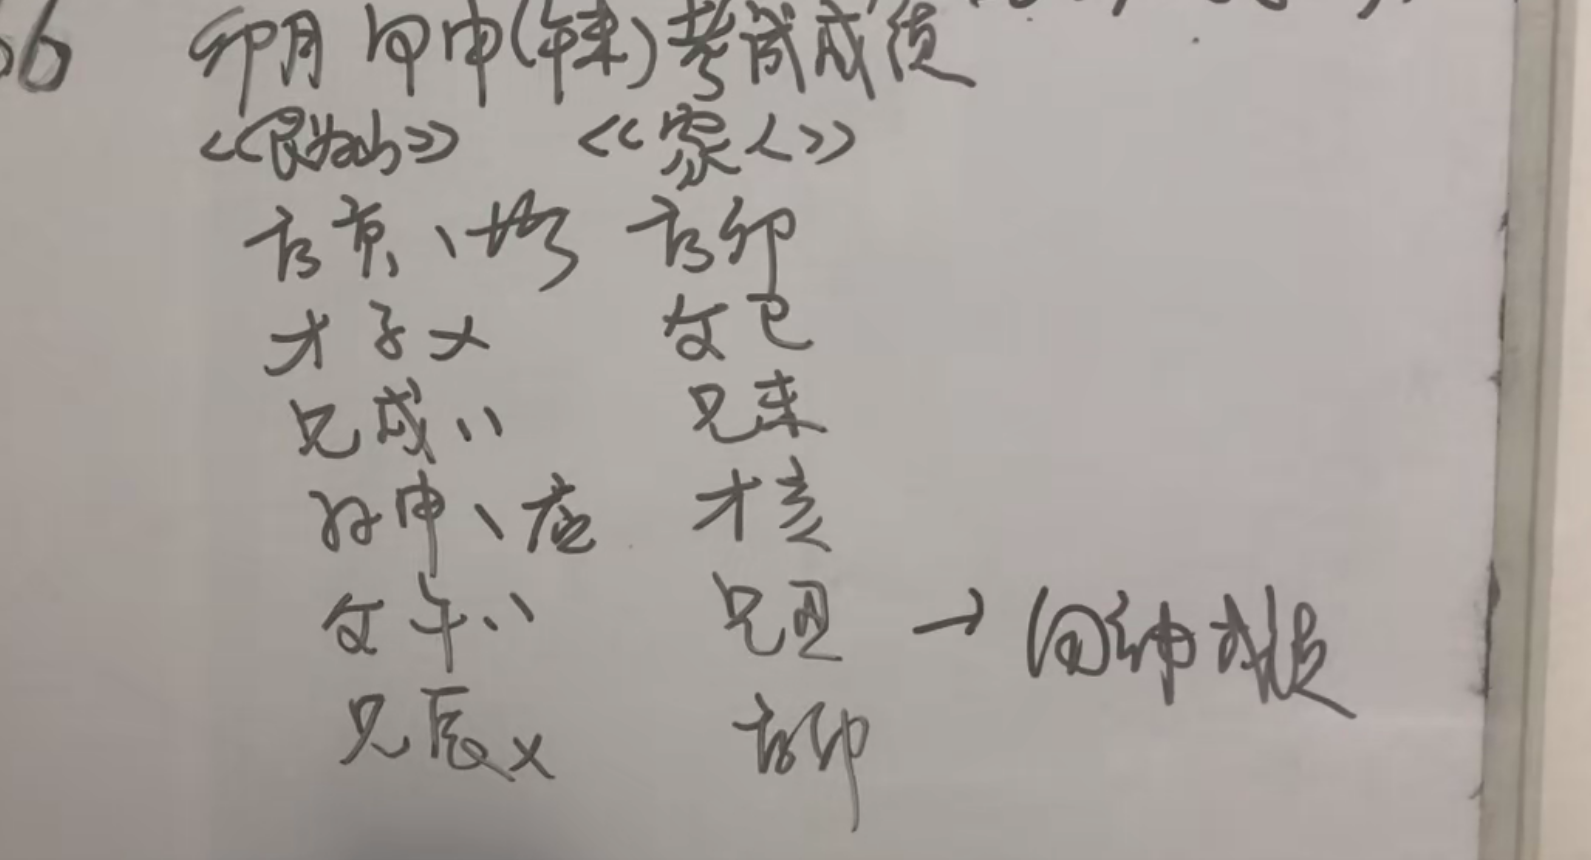 6 卯月 甲申(午未)考试成绩
《艮为山》 《家人》
官寅、世 官卯
才子x 父巳
兄戌、、 兄未
孙申、应 才亥
父午、、 兄丑 → 成绩
兄辰x 官卯